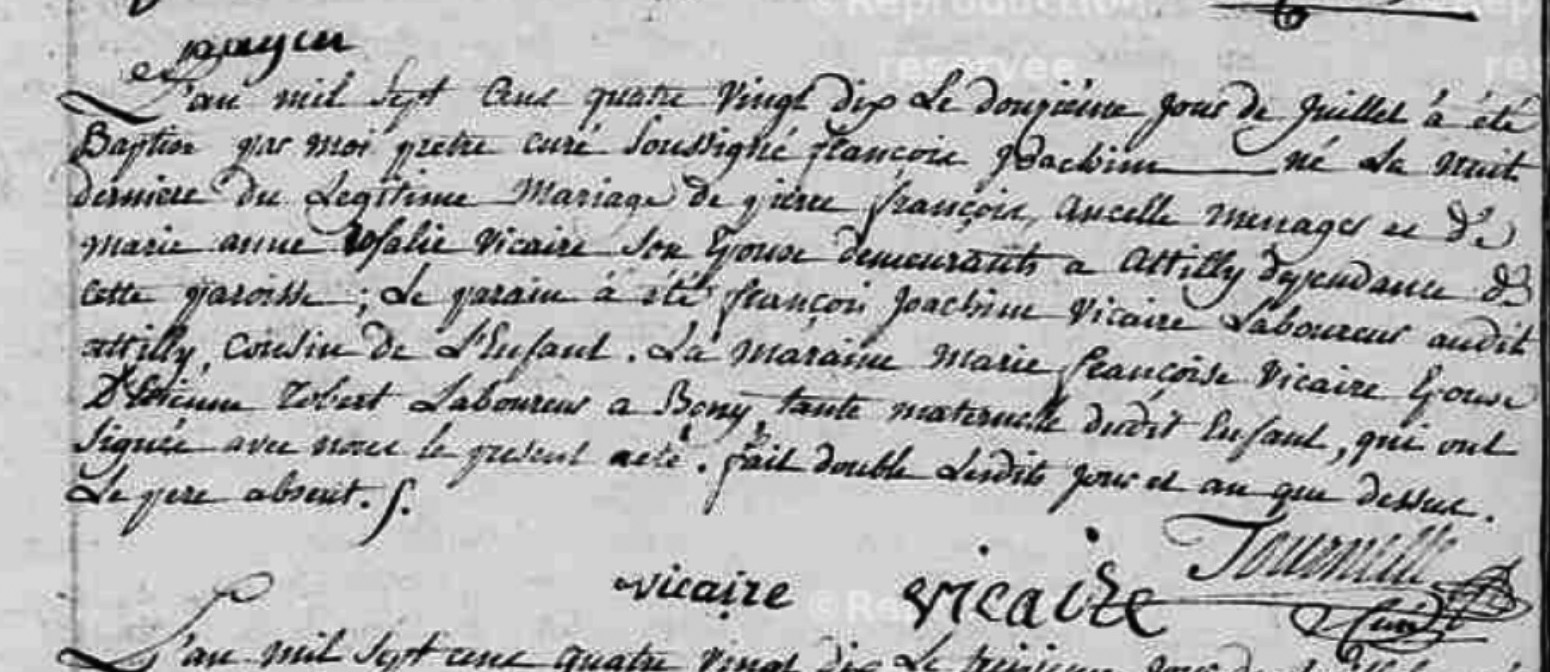 payen
L'an mil sept cens quatre vingt dix Le douzième jour de juillet à été
Baptisé par moi pretre curé soussigné françois joachim né La nuit
derniere du Legitime Mariage de pierre françois, ancelle menager et de
marie anne rosalie vicaire son Epouse demeurants a attilly dependance de
cette paroisse ; Le parain à été françois joachim vicaire Laboureur audit
attilly, cousin de L'Enfant. La maraine marie françoise vicaire Epouse
D'Etienne Robert Laboureur a Bony, tante maternelle dudit Enfant, qui ont
signée avec nous le present acte. fait double Lesdits jour et an que dessus.
Le pere absent. ſ.
Tournelle
vicaire vicaire
Curé
L'an mil sept cens quatre vingt dix Le treizieme jour de
© Reproduction
réservée